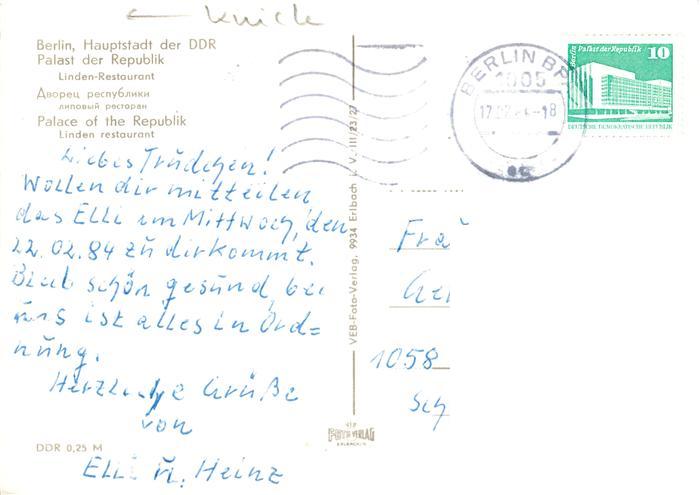 ← Knick
Berlin, Hauptstadt der DDR
Palast der Republik
Linden-Restaurant
Дворец республики
липовый ресторан
Palace of the Republik
Linden restaurant
Liebes Trudchen!
Wollen dir mitteilen
das Elli im Mittwoch, den
22.02.84 zu dir kommt.
Bleib schön gesund, bei
uns ist alles in Ord=
nung.
Herzliche Grüße
von
Elli u. Heinz
DDR 0,25 M
VEB-Foto-Verlag, 9934 Erlbach i. V. III/23/27
FOTO VERLAG
ERLBACH
BERLIN BP
1005
-18
Berlin Palast der Republik
10
DEUTSCHE DEMOKRATISCHE REPUBLIK
1058